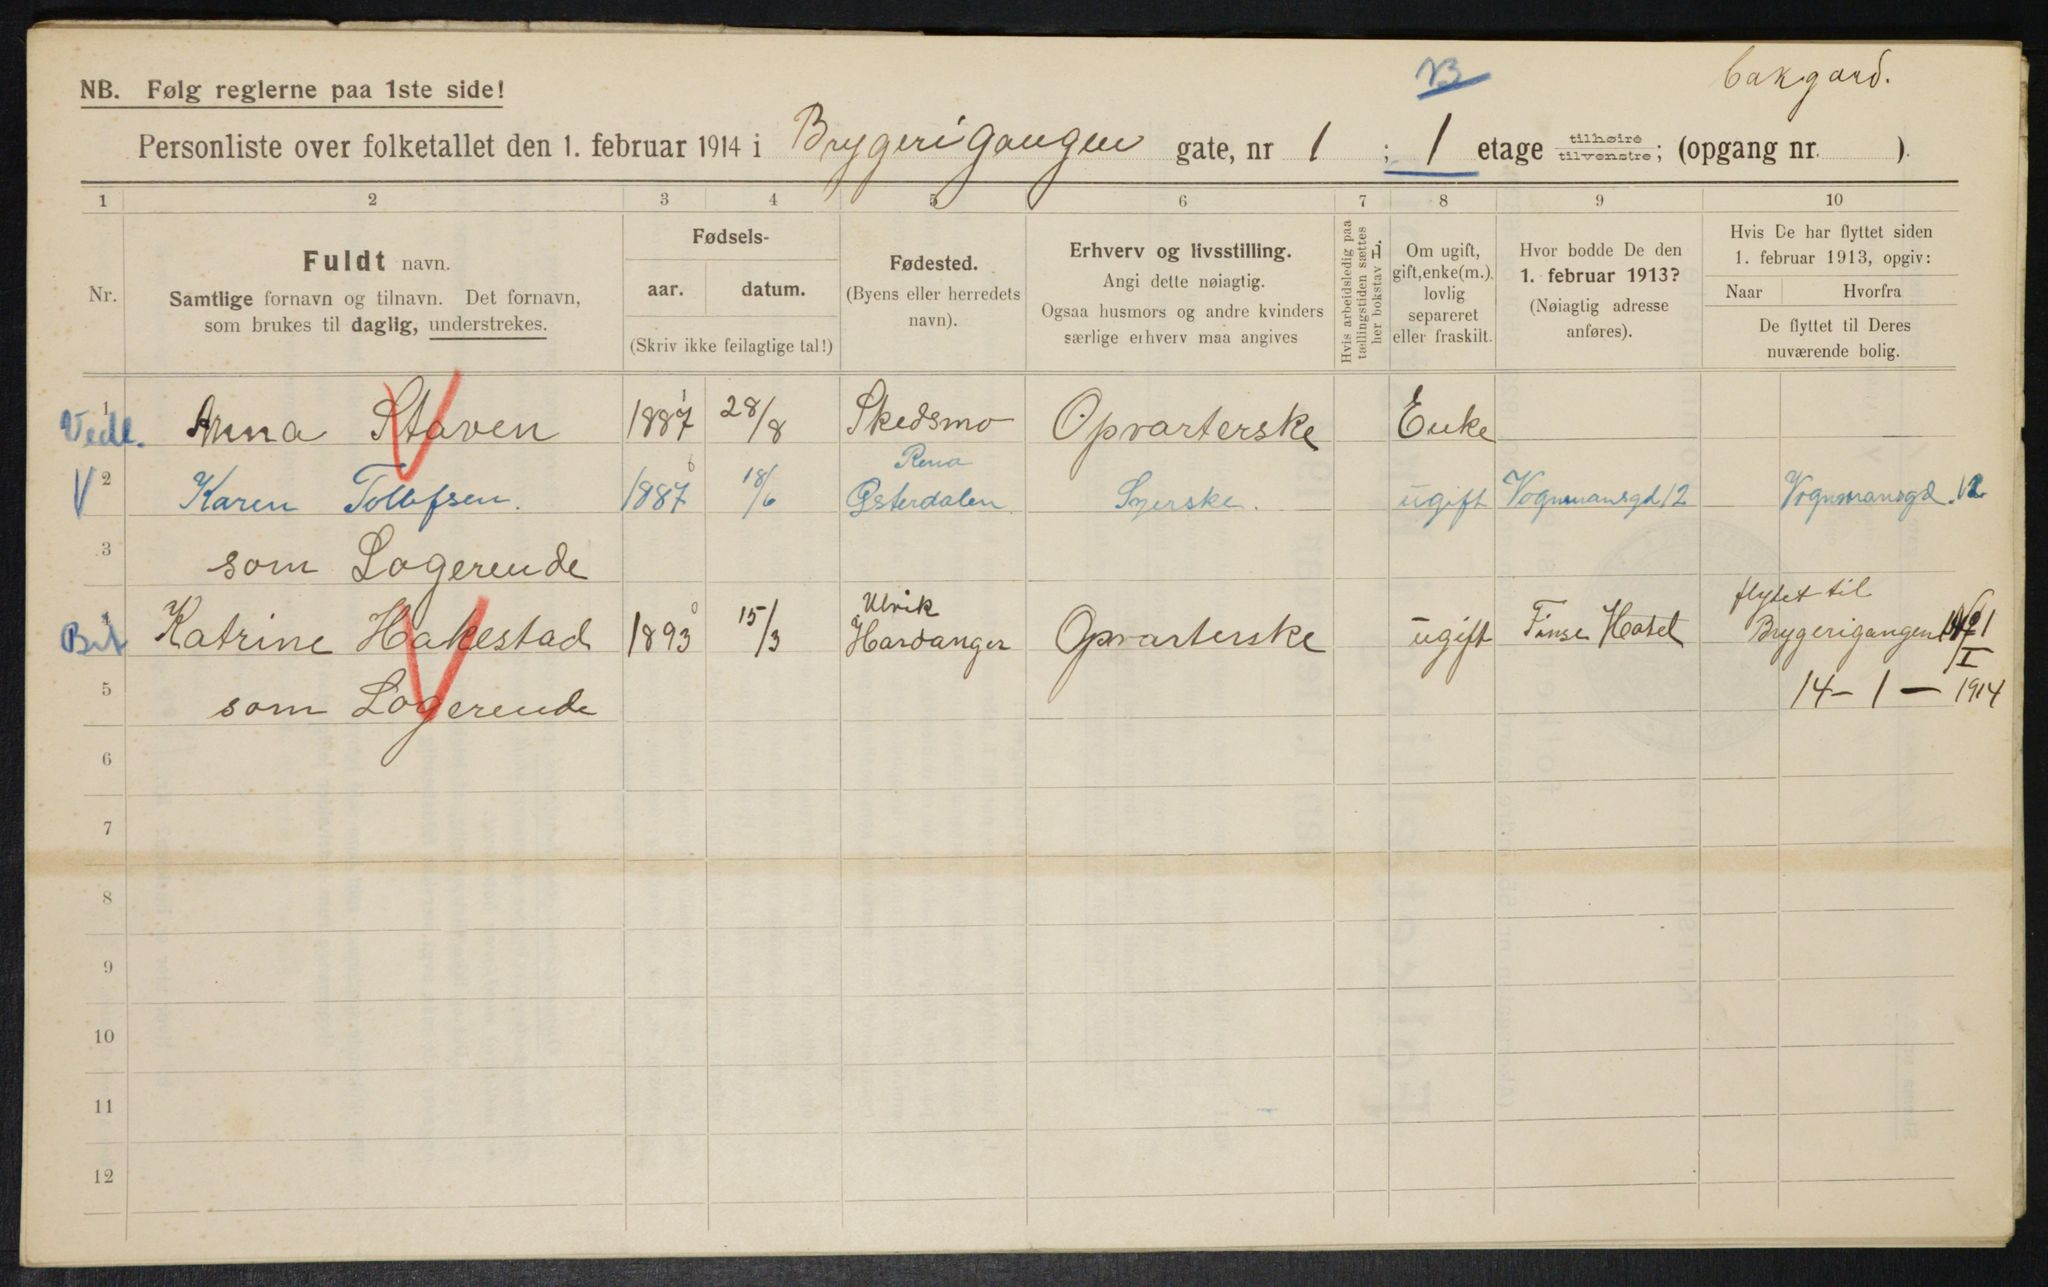 B
bakgard.
NB. Følg reglerne paa 1ste side!
Personliste over folketallet den 1. februar 1914 i Brygerigangen gate, nr 1 ; 1 etage tilhøire tilvenstre; (opgang nr. ).
1 2 3 4 5 6 7 8 9 10
Nr.
Fuldt navn.
Samtlige fornavn og tilnavn. Det fornavn,
som brukes til daglig, understrekes.
Fødsels-
aar. datum.
(Skriv ikke feilagtige tal!)
Fødested.
(Byens eller herredets
navn).
Erhverv og livsstilling.
Angi dette nøiagtig.
Ogsaa husmors og andre kvinders
særlige erhverv maa angives
Hvis arbeidsledig paa
tællingstiden sættes
her bokstav L.
Om ugift,
gift, enke(m.),
lovlig
separeret
eller fraskilt.
Hvor bodde De den
1. februar 1913?
(Nøiagtig adresse
anføres).
Hvis De har flyttet siden
1. februar 1913, opgiv:
Naar Hvorfra
De flyttet til Deres
nuværende bolig.
Vedl. 1 Anna Staven 1887 1 28/8 Skedsmo Opvarterske Enke
V 2 Karen Tollefsen. 1887 0 18/6 Rena Østerdalen. Syerske. ugift Vognmansgd 12 Vognmansgd. 12
3 som Logerende
Katrine Hakestad 1893 0 15/3 Ulvik Hardanger Opvarterske ugift Finse Hotel flytet til Brygerigangen
5 som Logerende 14-1-1914
6
7
8
9
10
11
12